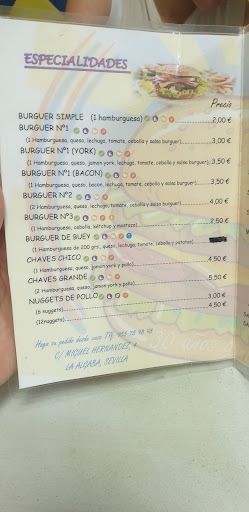 ESPECIALIDADES
Precio
BURGUER SIMPLE (1 hamburguesa) 2,00 €
BURGUER Nº1
(1 Hamburguesa, queso, lechuga, tomate, cebolla y salsa burguer) 3,00 €
BURGUER Nº1 (YORK)
(1 Hamburguesa, queso, jamon york, lechuga, tomate, cebolla y salsa burguer) 3,50 €
BURGUER Nº1 (BACON)
(1 Hamburguesa, queso, bacon, lechuga, tomate, cebolla y salsa burguer) 3,50 €
BURGUER Nº2
(2 Hamburguesa, queso, lechuga, tomate, cebolla y salsa burguer) 4,00 €
BURGUER Nº3
(1 Hamburguesa, cebolla, kétchup y mostaza) 2,50 €
BURGUER DE BUEY
(1 Hamburguesa de 200 grs, queso, lechuga, tomate, cebolla y patatas)
CHAVES CHICO
(1 Hamburguesa, queso, jamon york y pollo) 4,50 €
CHAVES GRANDE
(2 Hamburguesa, queso, jamon york y pollo) 5,50 €
NUGGETS DE POLLO
(6 nuggets) 3,00 €
(12nuggets) 4,50 €
Haga su pedido desde casa Tlf.
C/ MIGUEL HERNANDEZ,
LA ALGABA, SEVILLA